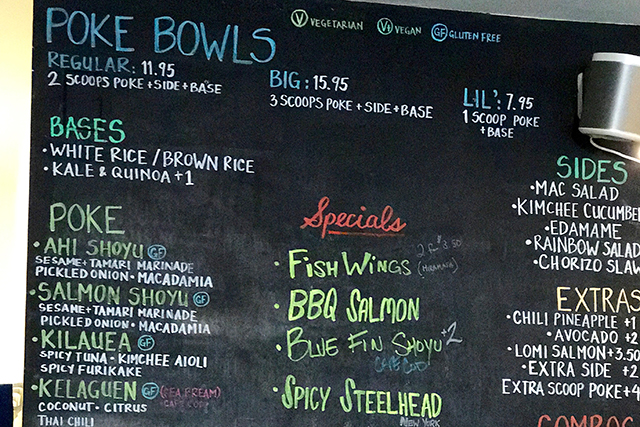 POKE BOWLS
V VEGETARIAN
VI VEGAN
GF GLUTEN FREE
REGULAR: 11.95
2 SCOOPS POKE + SIDE + BASE
BIG: 15.95
3 SCOOPS POKE + SIDE + BASE
LIL': 7.95
1 SCOOP POKE
+ BASE
BASES
• WHITE RICE / BROWN RICE
• KALE & QUINOA +1
POKE
• AHI SHOYU GF
SESAME + TAMARI MARINADE
PICKLED ONION • MACADAMIA
• SALMON SHOYU GF
SESAME + TAMARI MARINADE
PICKLED ONION • MACADAMIA
• KILAUEA GF
SPICY TUNA • KIMCHEE AIOLI
SPICY FURIKAKE
• KELAGUEN GF
COCONUT • CITRUS
THAI CHILI
Specials
• FISH WINGS 2 for $3.50
• BBQ SALMON
• BLUE FIN SHOYU +2
CAPE COD
• SPICY STEELHEAD
NEW YORK
SIDES
• MAC SALAD
• KIMCHEE CUCUMBE
EDAMAME
• RAINBOW SALAD
• CHORIZO SLAW
EXTRAS
• CHILI PINEAPPLE +1
• AVOCADO +2
• LOMI SALMON +3.50
• EXTRA SIDE +2
EXTRA SCOOP POKE +4
COMBOS